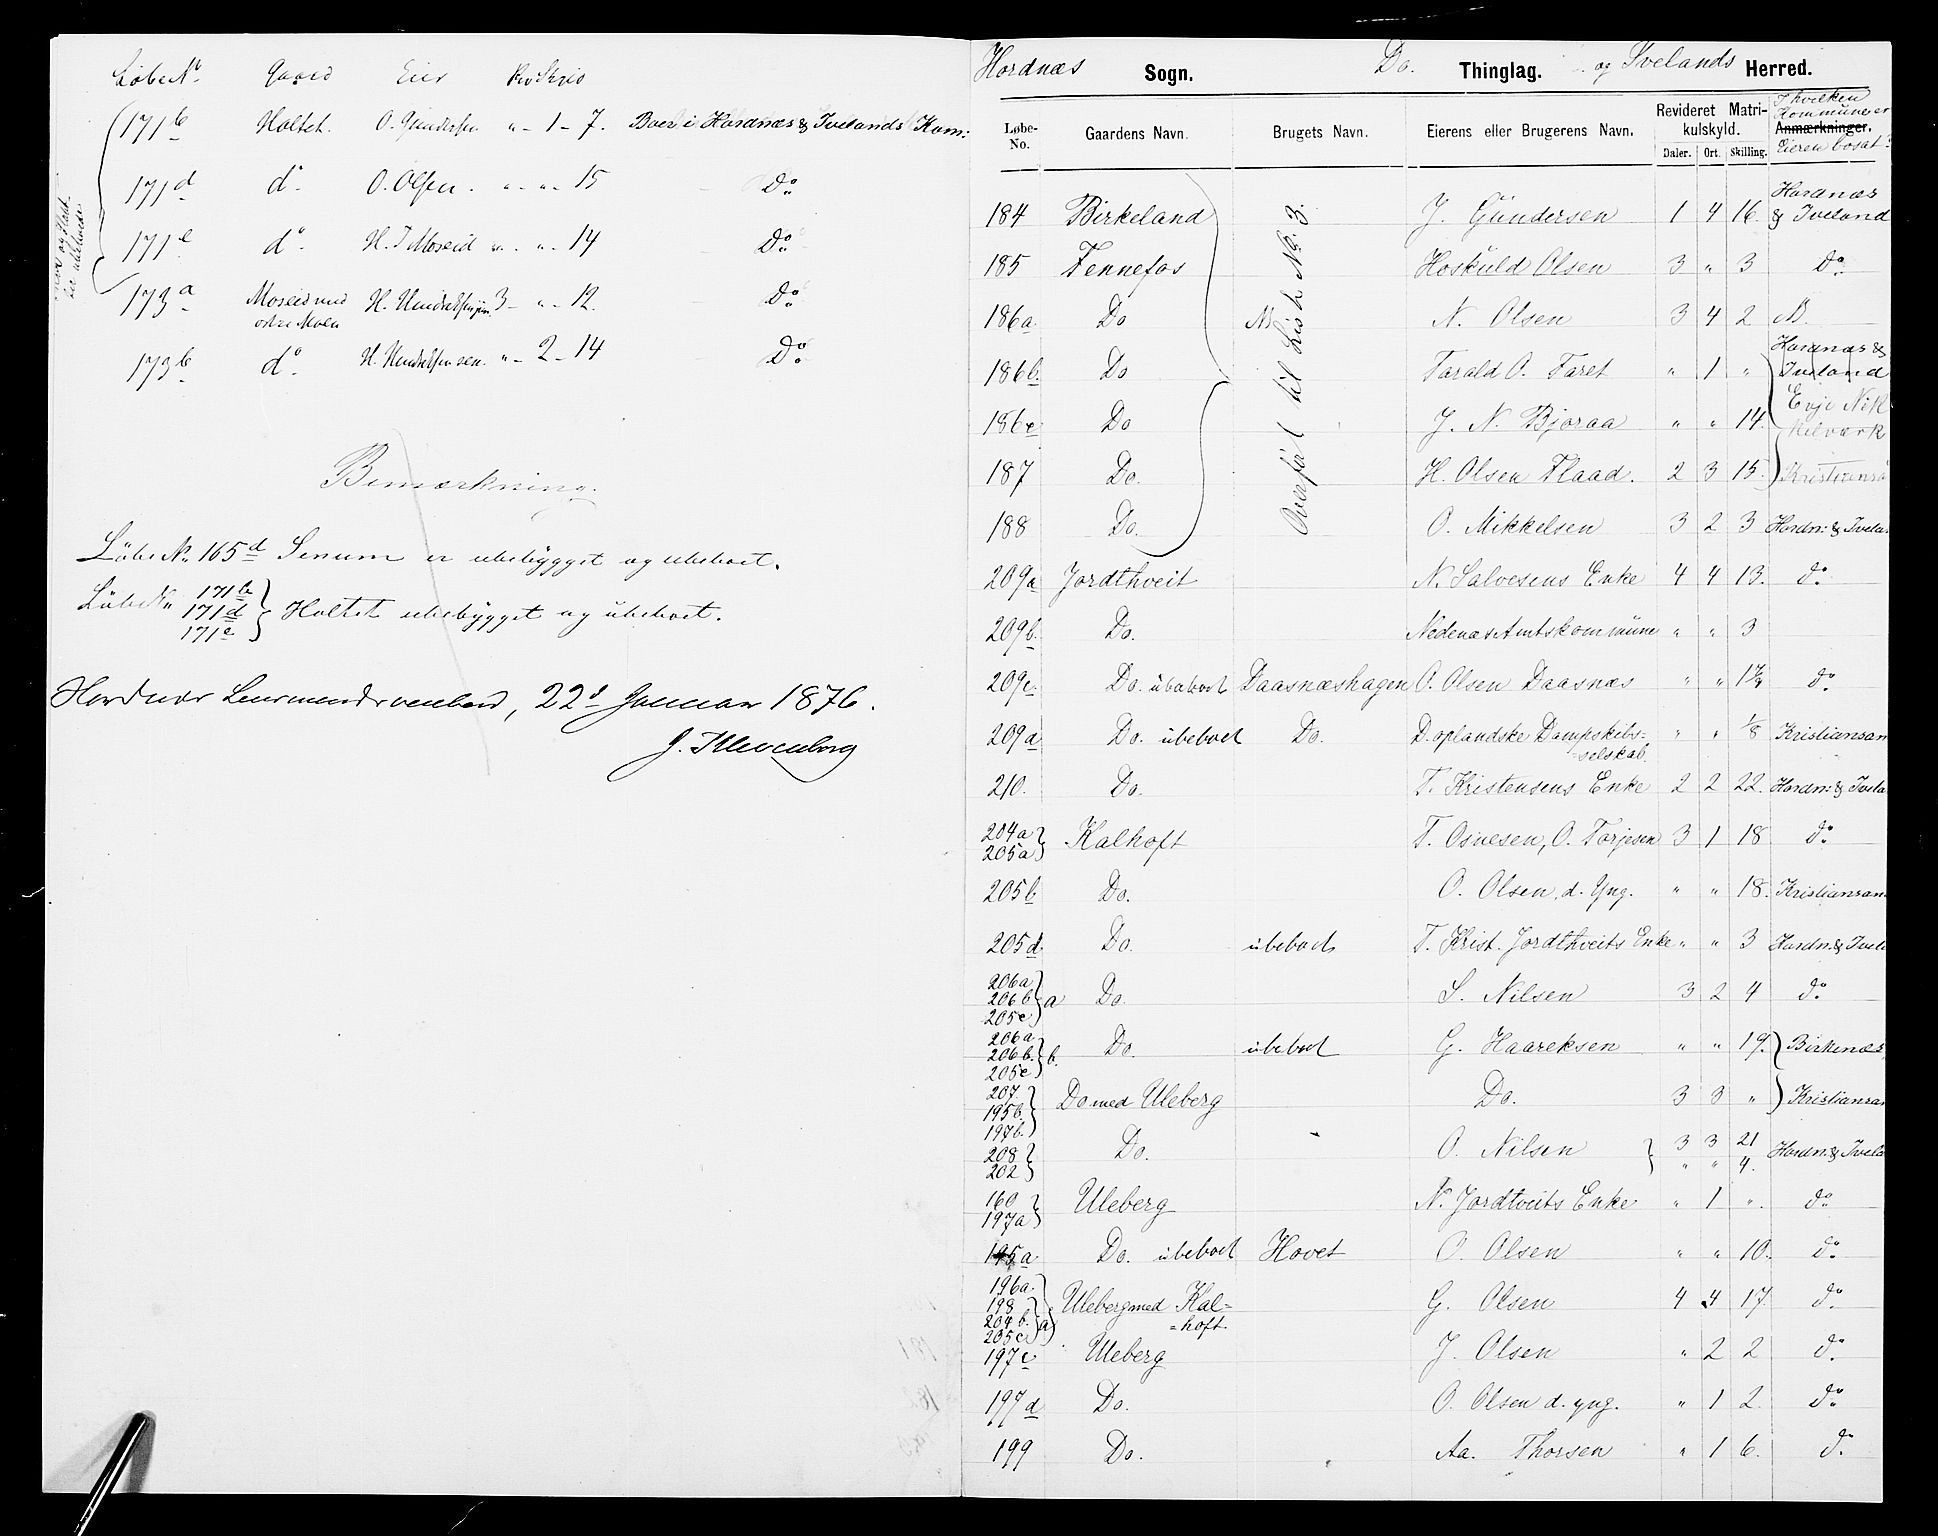 Løbe No. Gaard Eier Rev Skyld
171b Holtet. O. Gundersen. " - 1 - 7. Boer i Hordnæs & Ivelands Kom:
171d do. O. Olsen. " - " - 15 Do
171e do. H. T Moseid " - " - 14 Do
173a Moseid med H. Hendriksen jun. 3 - " - 12. Do
østre Moen
173b do. H. Hendriksen sen. " - 2 - 14 Do
Bemærkning.
Løbe No. 165d Senum er ubebygget og ubeboet.
Løbe No. 171b
171d } Holtet ubebygget og ubeboet.
171e
Hordnæs Lensmandsembed, 22d Januar 1876.
Hordnæs Sogn. Do. Thinglag. og Ivelands Herred.
Løbe-No. Gaardens Navn. Brugets Navn. Eierens eller Brugerens Navn. Revideret Matrikulskyld. Daler. Ort. Skilling. Anmærkninger. I hvilken Kommune er Eieren bosat?
Overført til Liste No. 3.
184 Birkeland J. Gundersen 1 4 16. Hordnæs & Iveland
185 Fennefos Hoskuld Olsen 3 " 3 Do
186a Do N. Olsen 3 4 2
186b. Do Tarald O. Faret " 1 " Hordnæs & Iveland
186c Do J. N. Bjoraa " " 14. Evje Nikkelværk
187 Do. H. Olsen Flaad. 2 3 15. Kristiansa
188 Do. O. Mikkelsen 3 2 3 Hordn: & Ivela
209a Jordthveit N. Salvesens Enke 4 4 13. do
209b. Do. Nedenæs Amtskommune " " 3
209c. Do. ubeboet Daasnæshagen O. Olsen Daasnæs " " 1 7/8 do
209d Do. ubeboet Do. D. oplandske Dampskibs-selskab. " " 1/8 Kristiansan
210. Do. T. Kristensens Enke 2 2 22. Hordn: & Ivela
204a 205a } Kalhoft T. Osuesen, O. Torjesen 3 1 18 do
205b Do. O. Olsen, d. Yng. " " 18. Kristiansan
205d. Do. ubeboet T. Krist. Jordthveits Enke " " 3 Hordn. & Ivela
206a 206b 205e } a Do. S. Nilsen 3 2 4 do
206a 206b. 205e } b. Do. ubeboet G. Haareksen " " 19. Birkenæs
207. 195b. 197b. } Do med Uleberg Do. 3 3 " Kristiansa
208 202 } Do. O. Nilsen } 3 3 21 " " 4. Hordn: & Ivela
160 197a } Uleberg N. Jordtveits Enke " 1 ". do
195a Do. ubeboet Hovet O. Olsen " " 10. do
196a. 198 204b. 205c } a Uleberg med Kal-hoft. G. Olsen 4 4 17. do
197c Uleberg J. Olsen " 2 2 do
197d Do. O. Olsen d. yng. " 1 2. do
199 Do. Aa. Thorsen " 1 6. do